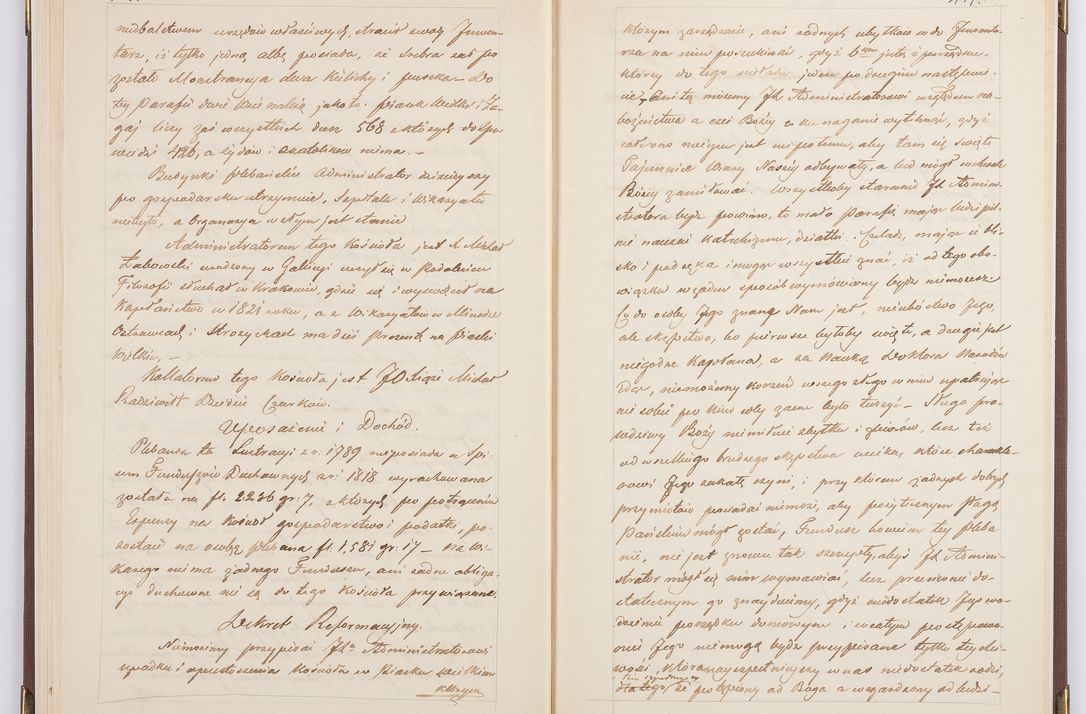 niedbalstwem urzędów właściwych, stracił swoją Inwen-
tarz, iż tylko jedną albę posiada, ze srebra zaś po
zostało Monstrancya dwa Kielichy i puszka — Do
tey Parafii dwie Wsie należą jako to: Piasek Wielki i Za
gaj liczy zaś wszystkich dusz 568 z których do spo
wiedzi 426, a żydów i akatolików niema. —
Budynki plebańskie Administrator dzisieyszy
po gospodarsku utrzymuie, Szpitala i Wikaryatu
niebyło, a Organarya w złym jest stanie
Administratorem tego Kościoła jest X Michał
Łabowski urodzony w Galicyi uczył się w Podolińcu
Filozofii słuchał w Krakowie, gdzie się i wyświęcił na
Kapłaństwo w 1821 roku, a z Wikaryatów w
i ma dziś Prezentę na Piaski
Wielkie, —
Kollatorem tego Kościoła jest JO Xiążę Michał
Radziwiłł Dziedzic Czarkow.
Uposażenie i Dochód.
Plebania ta Lustracyi z r. 1789 nieposiada a Spi
sem Funduszów Duchownych z r: 1818 wyrachowana
została na fl. 2236 gr: 7, z których po potrąceniu
Expensy na Kościoł gospodarstwo i podatki, po-
zostaie na osobę plebana fl. 1,581 gr: 17 — na Wi-
karego niema żadnego Funduszu, ani żadne obliga-
cye duchowne nie są do tego Kościoła przywiązane.
Dekret Reformacyjny.
Niemożemy przypisać JXu Administratorowi
upadku i opustoszenia Kościoła w Piasku wielkim
którym
którym zarządzanie, ani żadnych ubytków w do Inwenta-
rza na nim poszukiwać, gdyż 6tym jest z porządku,
którzy do tego jeden po drugim następowa-
nie, Ani też możemy JX Administratorowi względem na-
bożeństwa a czci Bożey co ku naganie wytknąć, gdyż
całe ono niczym jest niepotemu, aby tam się święte
Tajemnice Wiary Naszey odbywały, a lud mógł w chwale
Bożey zamiłować. Wszystkoby staranie JX Admini-
stratora być powinno, to mało Parafię mając ludzi pil-
nie nauczać katechizmu, dziatki i Czeladź, mając ich bli-
sko i pod ręką i mogąc wszystkie znać, iż od tego obo-
wiązku w żaden sposób wymówiony być nie możesz.
Co do osoby Jego znaną Nam jest, nie ubóstwo Jego,
ale skąpstwo, bo pierwsze byłoby cnotą, a drugie jest
niegodne Kapłana, a za nauką Doktora Narodów
Idąc, niemożemy korzeń wszego złego w nim upatrując
nie sobie po nim coby zacne było tuszyć — Sługa pra-
wdziwy Boży nie miłuie zbytku i zbiorów, lecz też
od wszelkiego brudnego skąpstwa ucieka, które charakte-
rowi Jego zakałę czyni, i przy którem żadnych dobrych
przymiotów posiadać niemoże, aby pożytecznym sługą
Pańskim mógł zostać, Fundusz bowiem tey Pleba
nii, nie jest znowu tak szczupły, abyś JX Admini-
strator mógł się nim wymawiać, lecz przeciwnie do-
statecznym go znayduiemy, gdyż niedostatek Jego w
porządku domowym i w całym postępowa-
niu Jego niemogą być przypisane tylko tey chci-
wości, która nayszpetnieyszy w nas niedostatek rodzi,
Dla tego też potępiony od Boga a wzgardzony od ludzi —